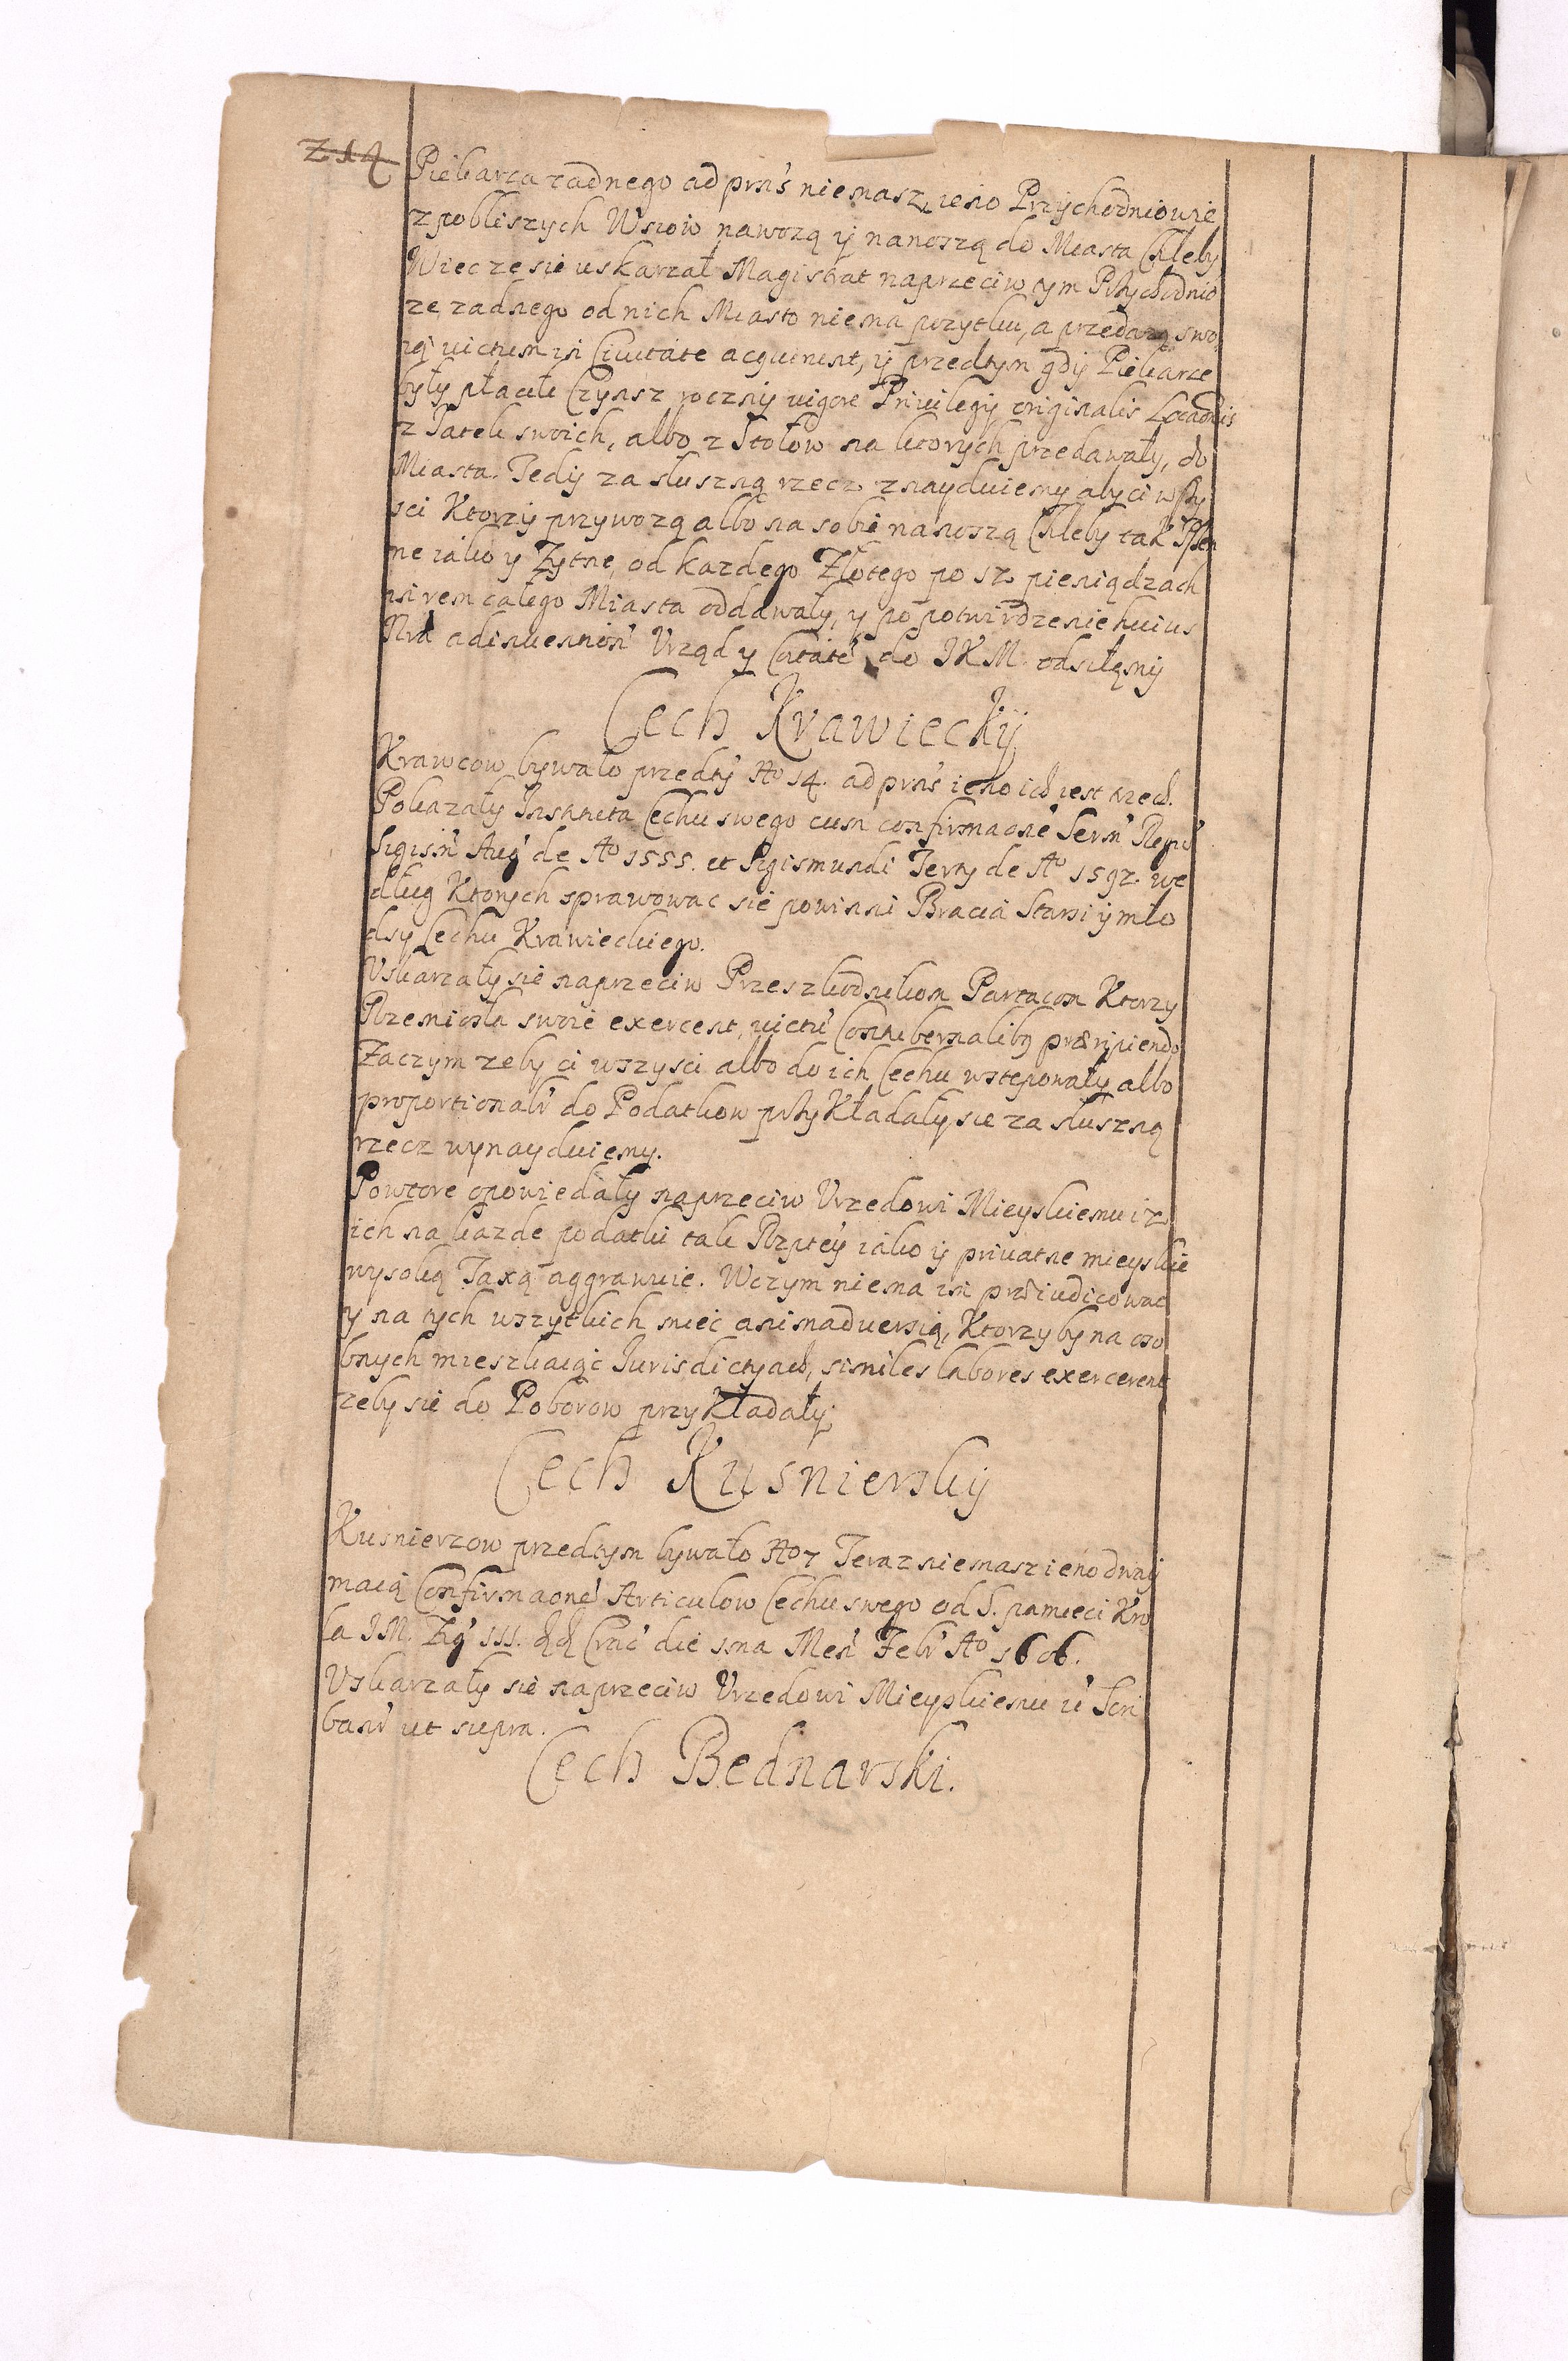 214
Piekarza zadnego ad prns niemasz, ieno Przychodniowie
z pobliszych Wsiow nawozą ÿ nanoszą do Miasta Chleby
Wiec ze sie uskarzał Magistrat naprzeciw tym Przychodnio
ze zadnego od nich Miasto niema pozytku, a przedazą swo
ią victum in Civitate acquirent, ÿ przedtym gdÿ Piekarze
były płacili Czynsz rocznÿ vigore Privilegÿ originalis Locaonis
z Jatek swoich, albo z Stołow na ktorych przedawały, do
Miasta. Tedÿ za sluszną rzecz znayduiemy aby ci wszy
sci Ktorzÿ przywozą albo na sobie nanoszą Chleby tak Psen
ne iako y Zytne, od kazdego Złotego po sz. pieniądzach
in rem całego Miasta oddawały, y po potwirdzenie huius
Nra adinvennon Urząd y Cntate do JKM. odsiłęmÿ
Cech Krawieckÿ
Krawcow bywało przedty No 14. ad prns ieno ich iest trzech.
Pokazały Instituta Cechu swego cum confirmaone Serm Regu
Sigism Aug de Ao 1555. et Sigismundi Terty de Ao 1592. we
dług Ktorych sprawowac sie powinni Bracia Starsi ÿ mło
dsy Cechu Krawieckiego.
Uskarzały sie naprzeciw Przeszkodnikom Partacom Ktorzy
Rzemiosła swoie exercent, victu Contubernalibg præripiendo
Zaczym zeby ci wszysci albo do ich Cechu wstępowały albo
proportionalr do Podatkow przykładały sie za sluszną
rzecz wynayduiemy.
Powtore opowiedały naprzeciw Urzedowi Mieyskiemu iz
ich na kazde podatki tak Rzptey iako ÿ privatne mieyskie
wysoką Taxą aggrawuie. W czym niema im præiudicowac
y na tych wszytkich miec animadversią, Ktorzyby na oso
bnych mieszkaiąc Jurisdictyach, similes labores exercerent
zeby sie do Poborow przykładały.
Cech Kusnierskÿ
Kusnierzow przedtym bywało No 7 Teraz niemasz ieno dwaÿ
maią Confirmaone Articulow Cechu swego od S. pamieci Kro
la JM. Zig III. Crac die 1ma Mens Febr Ao 1606.
Uskarzały sie naprzeciw Urzedowi Mieyskiemu
ut supra.
Cech Bednarski.